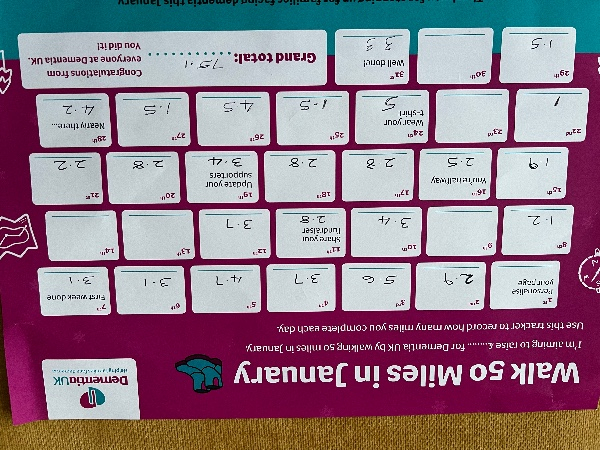 Walk 50 Miles in January
DementiaUK
I'm aiming to raise £...... for Dementia UK by walking 50 miles in January.
Use this tracker to record how many miles you complete each day.
1st Personalise your page
2nd 2.9
3rd 5.6
4th 3.7
5th 4.7
6th 3.1
7th First week done 3.1
8th 1.2
9th
10th 3.4
11th Share your fundraiser 2.8
12th 3.7
13th
14th
15th 1.9
16th You're halfway 2.5
17th 2.8
18th 2.8
19th Update your supporters 3.4
20th 2.8
21st 2.2
22nd 1
23rd
24th Wear your t-shirt 5
25th 1.5
26th 4.5
27th 1.5
28th Nearly there... 4.2
29th 1.5
30th
31st Well done! 3.3
Grand total: 75.1
Congratulations from
everyone at Dementia UK.
You did it!
families facing dementia this January